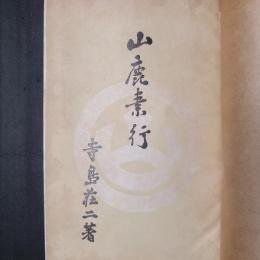 山鹿素行
寺島荘二著